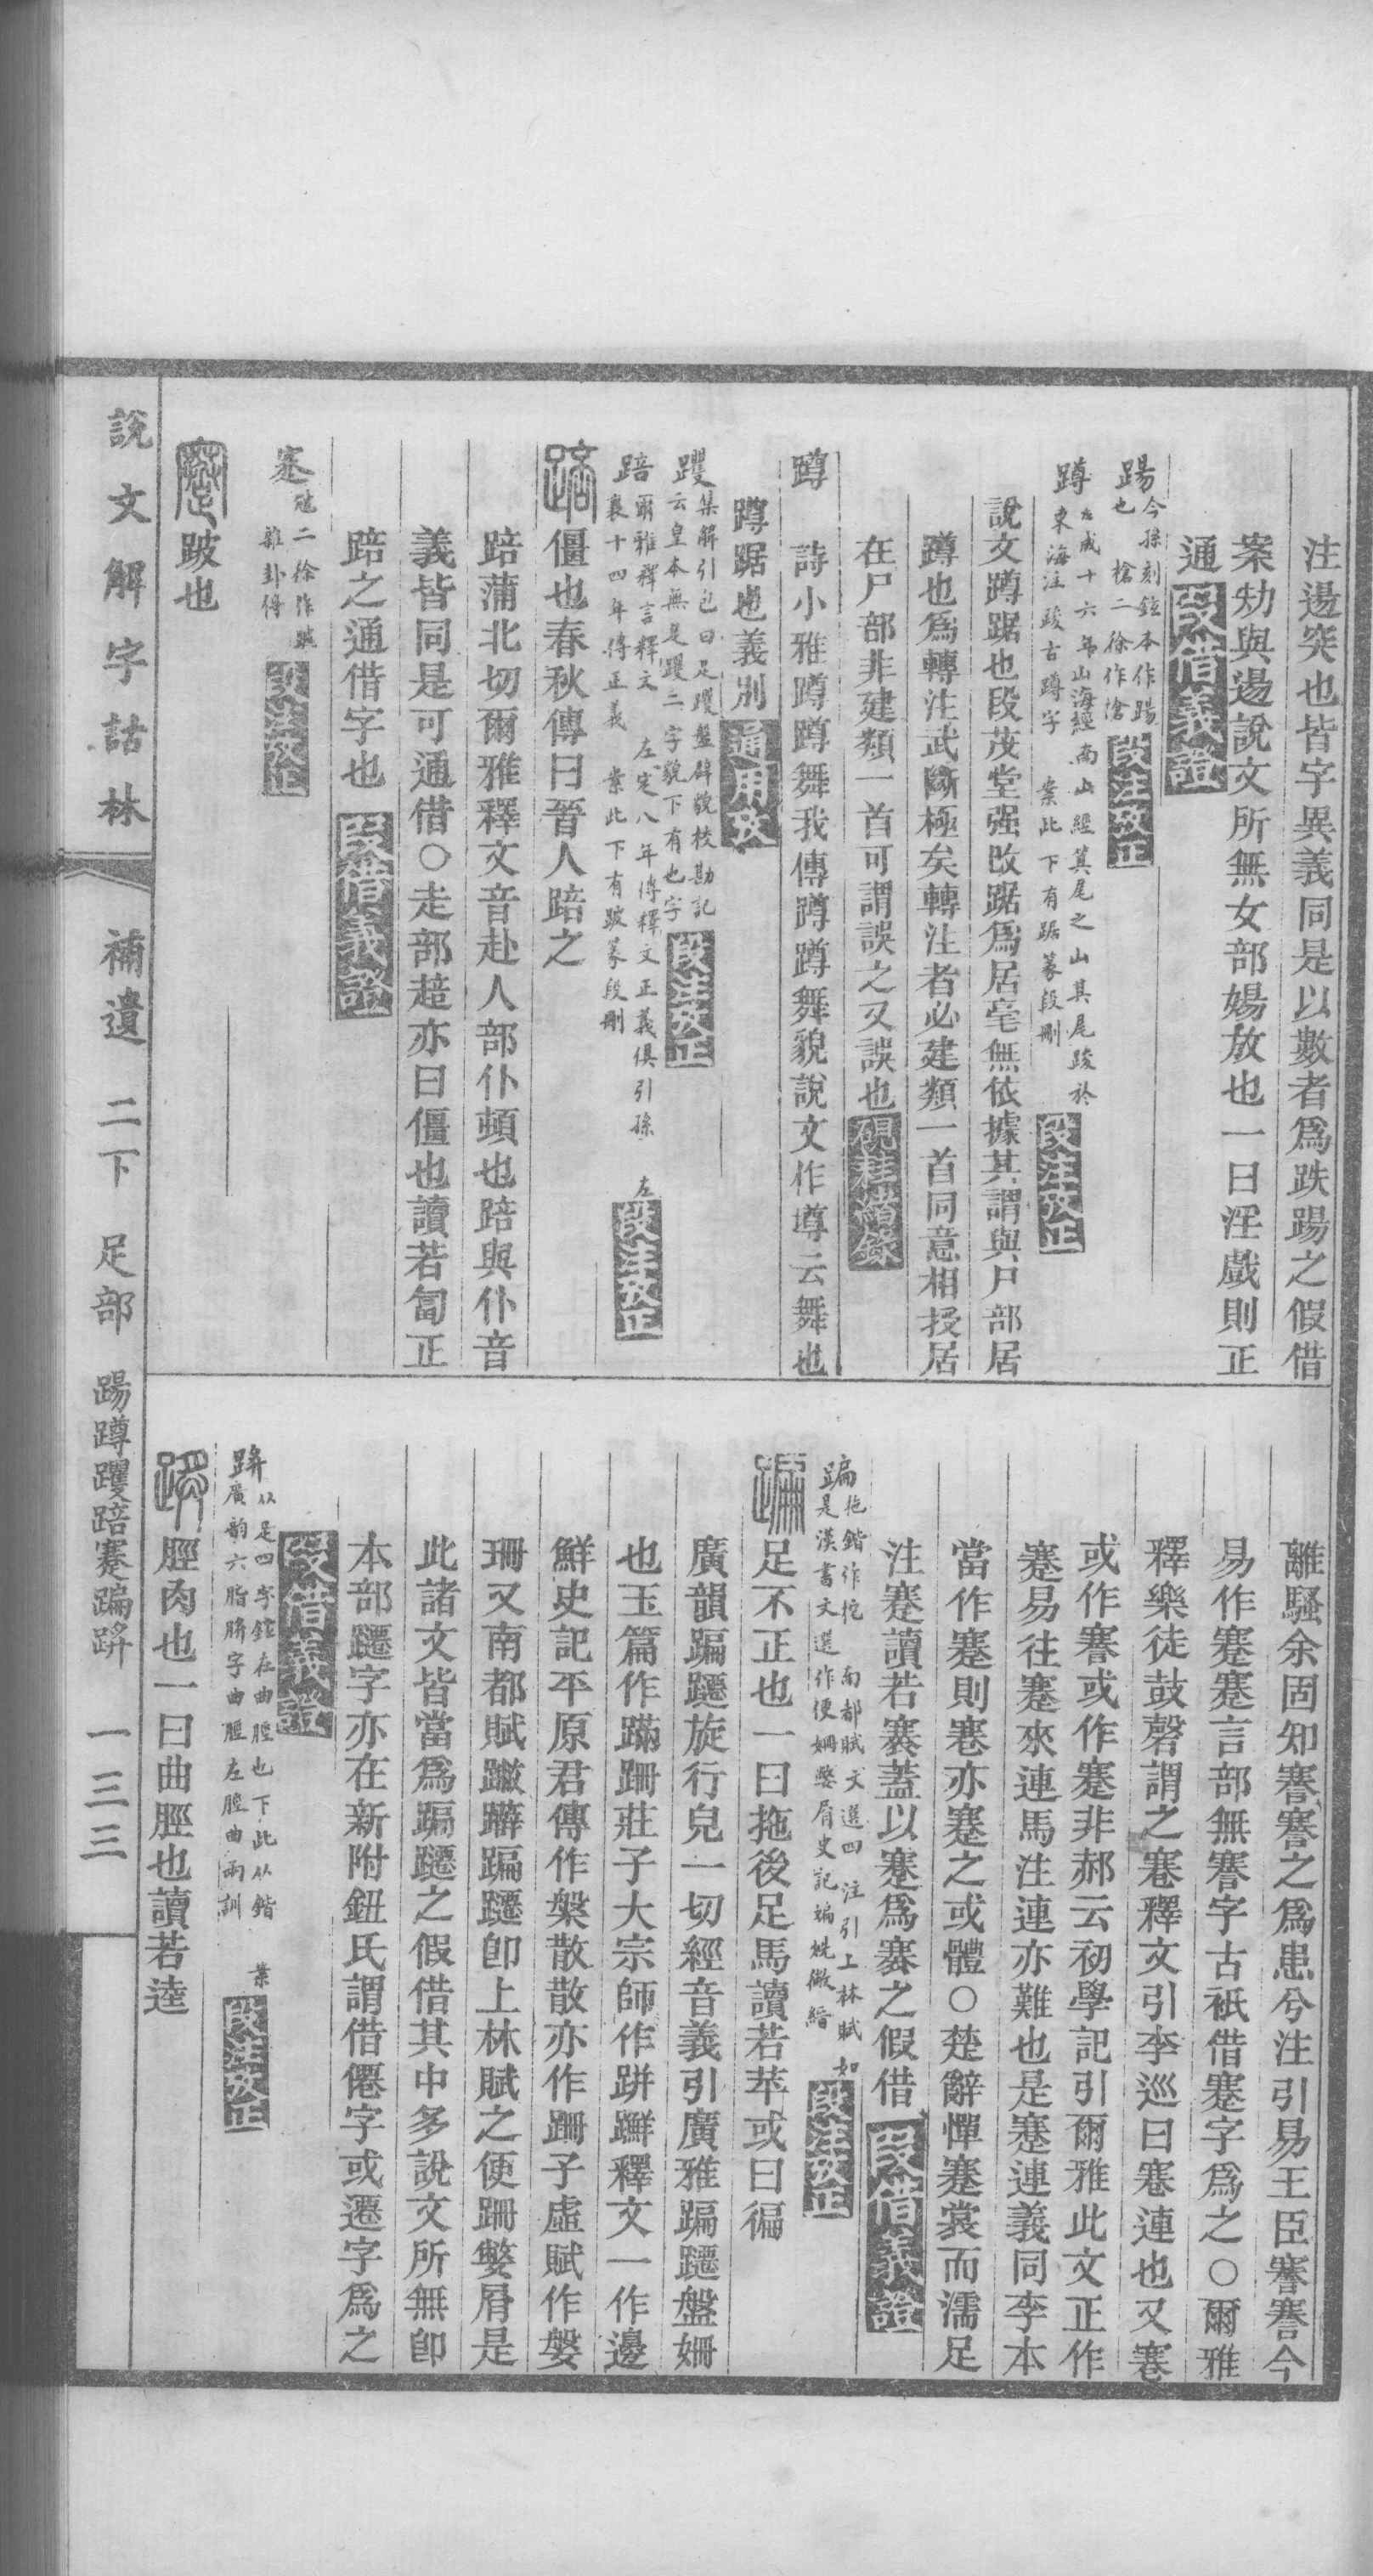 注逿突也皆字異義同是以數者爲跌踼之假借
案㓡與逿說文所無女部婸放也一曰淫戲則正
通 段借義證
踼 今孫刻鉉本作踼
也 槍二徐作搶 段注攷正
蹲 左成十六年 山海經南山經箕尾之山其尾踆於
東海注踆古蹲字 案此下有踞篆段刪 段注攷正
說文蹲踞也段茂堂强改踞爲居毫無依據其謂與尸部居
蹲也爲轉注武斷極矣轉注者必建類一首同意相授居
在尸部非建類一首可謂誤之又誤也 硯桂緒錄
蹲 詩小雅蹲蹲舞我傳蹲蹲舞貌說文作墫云舞也
蹲踞也義別 通用攷
躩 集解引包曰足躩盤辟貌校勘記
云皇本無是躩二字貌下有也字 段注攷正
踣 爾雅釋言釋文 左定八年傳釋文正義俱引孫 左
襄十四年傳正義 案此下有跛篆段刪 段注攷正
踣 僵也春秋傳曰晉人踣之
踣蒲北切爾雅釋文音赴人部仆頓也踣與仆音
義皆同是可通借○走部䞳亦曰僵也讀若匐正
踣之通借字也 段借義證
蹇 㝿二徐作跛
雜卦傳 段注攷正
蹇 跛也
離騷余固知謇謇之爲患兮注引易王臣謇謇今
易作蹇蹇言部無謇字古衹借蹇字爲之○爾雅
釋樂徒鼓磬謂之寋釋文引李巡曰寋連也又寋
或作謇或作蹇非郝云初學記引爾雅此文正作
蹇易往蹇來連馬注連亦難也是蹇連義同李本
當作蹇則寋亦蹇之或體○楚辭憚蹇裳而濡足
注蹇讀若褰蓋以蹇爲褰之假借 段借義證
蹁 拖鍇作挖 南都賦文選四注引上林賦 如
是漢書文選作便姍嫳屑史記媥姺徶䙄 段注攷正
蹁 足不正也一曰拖後足馬讀若苹或曰徧
廣韻蹁躚旋行皃一切經音義引廣雅蹁躚盤姍
也玉篇作蹣跚莊子大宗師作跰𨇤釋文一作邊
鮮史記平原君傳作槃散散亦作跚子虛賦作媻
珊又南都賦蹩躃蹁躚卽上林賦之便跚嫳屑是
此諸文皆當爲蹁躚之假借其中多說文所無卽
本部躚字亦在新附鈕氏謂借僊字或遷字爲之
段借義證
跰 从足四字鉉在曲脛也下此从鍇 案
廣韵六脂䏶字曲脛左脛曲兩訓 段注攷正
𨂠 脛肉也一曰曲脛也讀若逵
說文解字詁林 補遺 二下 足部 踼蹲躩踣蹇蹁跰 一三三